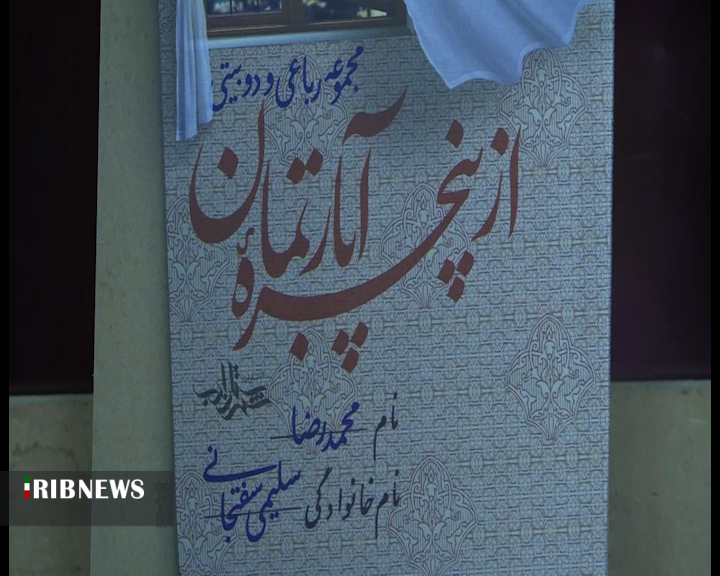 مجموعه رباعی و دوبیتی
از پنجرهٔ آپارتمان
نام محمدرضا
نام خانوادگی سلیمی سفتجانی
IRIBNEWS